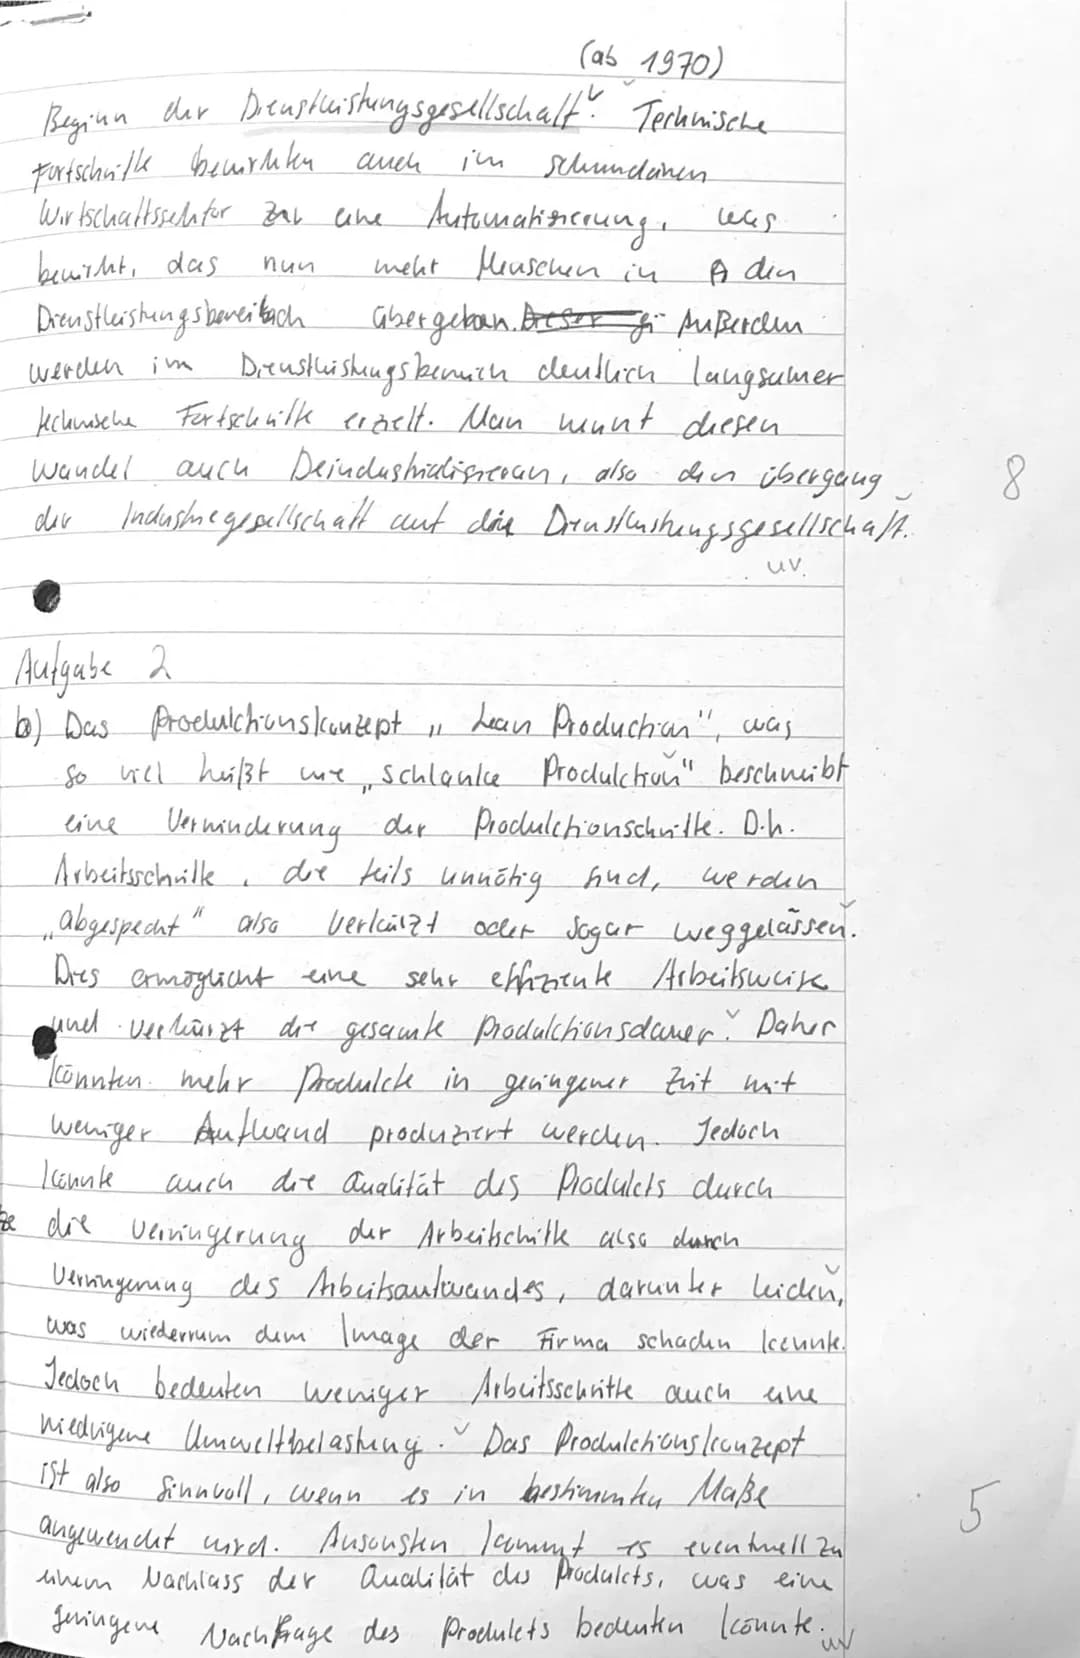 (ab 1970)
Beginn der Dienstleistungsgesellschaft. Technische
Fortschritte bewirkten auch im sekundären
Wirtschaftssektor eine Automatisierung, was
bewirkt, das nun mehr Menschen in den
Dienstleistungsbereich übergehen. Außerdem
werden im Dienstleistungsbereich deutlich langsamer
technische Fortschritte erzielt. Man nennt diesen
Wandel auch Deindustrialisieren, also den übergang
der Industriegesellschaft auf die Dienstleistungsgesellschaft.
8
uv.
Aufgabe 2
b) Das Produktionskonzept „Lean Production", was
so viel heißt wie „schlanke Produktion" beschreibt
eine Verminderung der Produktionschritte. D.h.
Arbeitsschritte, die teils unnötig sind, werden
„abgespeckt" also verkürzt oder sogar weggelassen.
Dies ermöglicht eine sehr effiziente Arbeitsweise
und verkürzt die gesamte Produktionsdauer. Daher
könnten mehr Produkte in geringener Zeit mit
weniger Aufwand produziert werden. Jedoch
könnte auch die Qualität des Produkts durch
die veringerung der Arbeitschitte also durch
Verringerung des Arbeitsaufwandes, darunter leiden,
was wiederrum dem Image der Firma schaden könnte.
Jedoch bedeuten weniger Arbeitsschritte auch eine
niedrigene Umweltbelastung. Das Produktionskonzept
ist also sinnvoll, wenn es in bestimmten Maße
5
angewendet wird. Ansonsten kommt es eventuell zu
einem Nachlass der Qualität des Produkts, was eine
geringene Nachfrage des Produkts bedeuten könnte.
uv